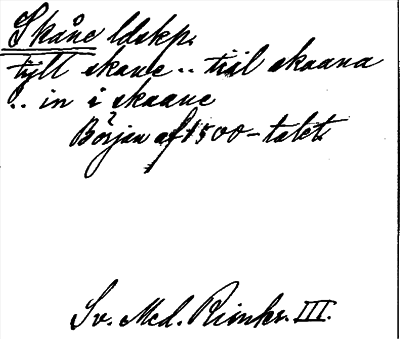 Skåne ldskp.
tytt skane .. till skaana
.. in i skaane
Början af 1500-talet.
Sv. Med. Rimkr. III.